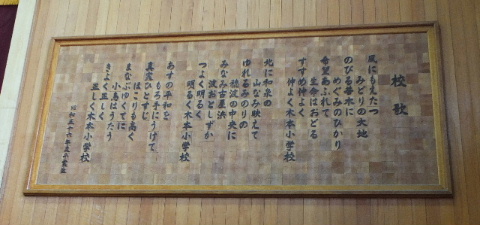 校歌
風にもえたつ
みどりの大地
のびる春木に
めぐみのひかり
希望あふれて
生命はおどる
すすめ仲よく
仲よく木本小学校
北に和泉の
山なみ映えて
ゆれるみのりの
穂波の中央に
みなみ古屋浜
波おとしずか
つよく明るく
明るく木本小学校
あすの平和を
もろ手にうけて
真実ひとすじ
ほこりも高く
まなぶゆくてに
小鳥はうたう
きよく正しく
正しく木本小学校